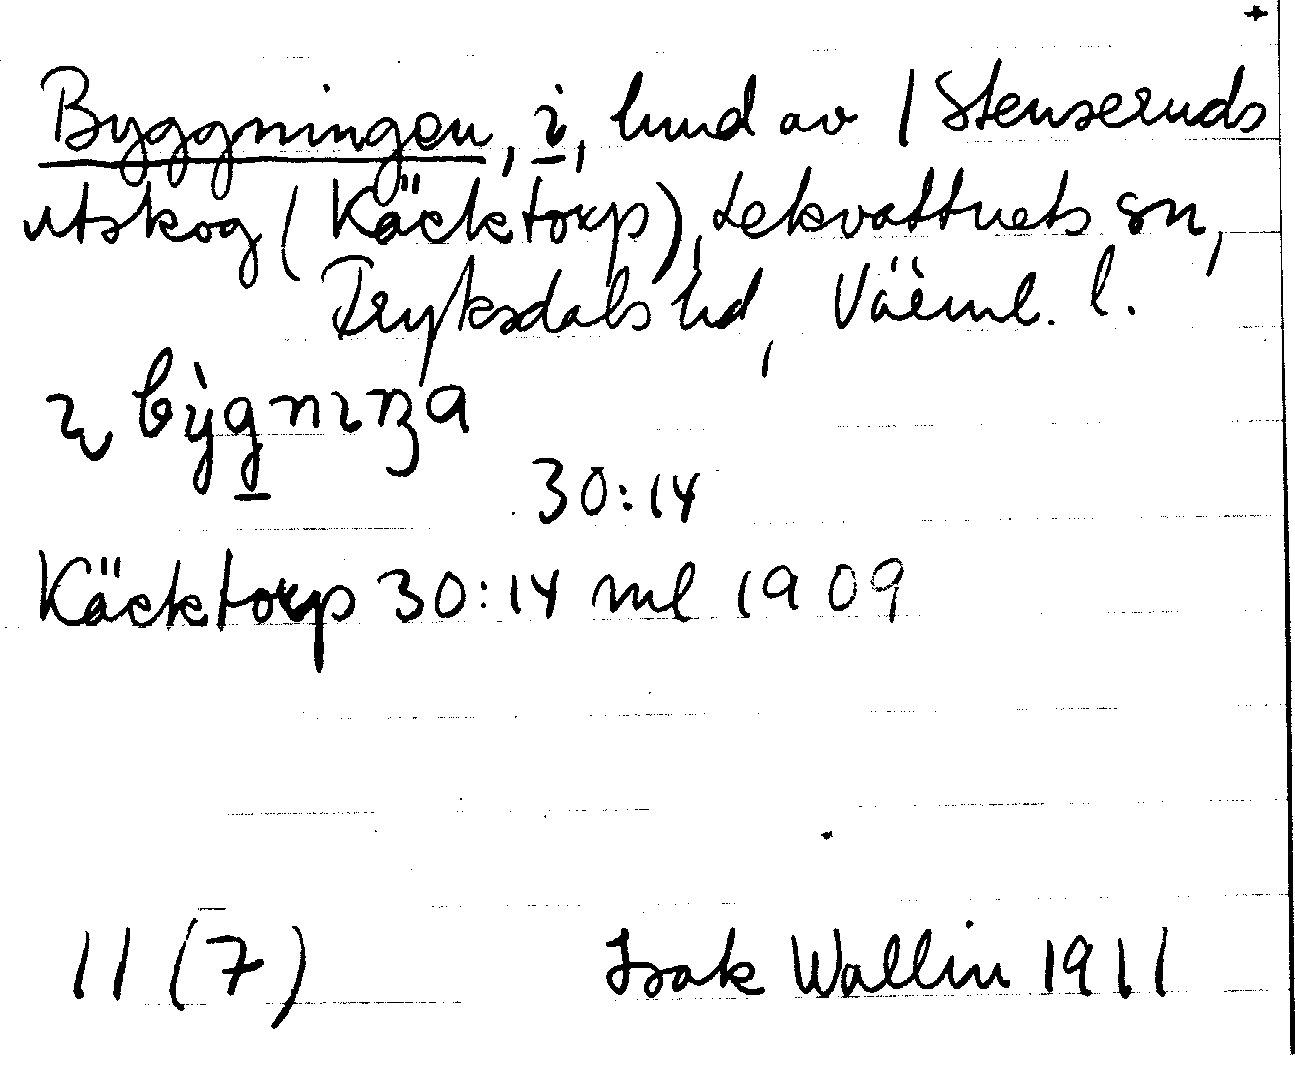 Byggningen, i, hmd av 1 Stenseruds
utskog (Käcktorp), Lekvattnets sn,
Fryksdals hd, Värml. l.
ɩ bỳgnɩŋa
30:14
Käcktorp 30:14 ml 1909
11 (7) Isak Wallin 1911